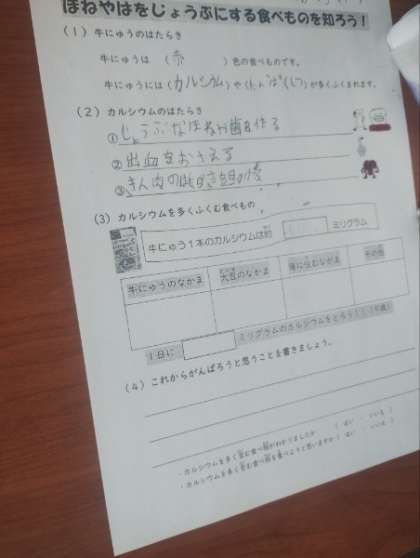 ほねやはをじょうぶにする食べものを知ろう!
(1)牛にゅうのはたらき
牛にゅうは (赤 )色の食べものです。
牛にゅうには(カルシウム)や(たんぱくしつ)が多くふくまれます。
(2)カルシウムのはたらき
①じょうぶな ほねや歯を作る
②出血をおさえる
③きん肉の
(3)カルシウムを多くふくむ食べもの
牛にゅう1本のカルシウムは約 ミリグラム
牛にゅうのなかま 大豆のなかま 海に住むなかま その他
1日に ミリグラムのカルシウムをとろう!
(4)これからがんばろうと思うことを書きましょう。
・カルシウムを多く含む食べ物がわかりましたか (はい ・ いいえ)
・カルシウムを多く含む食べ物を食べようと思いますか(はい ・ いいえ)